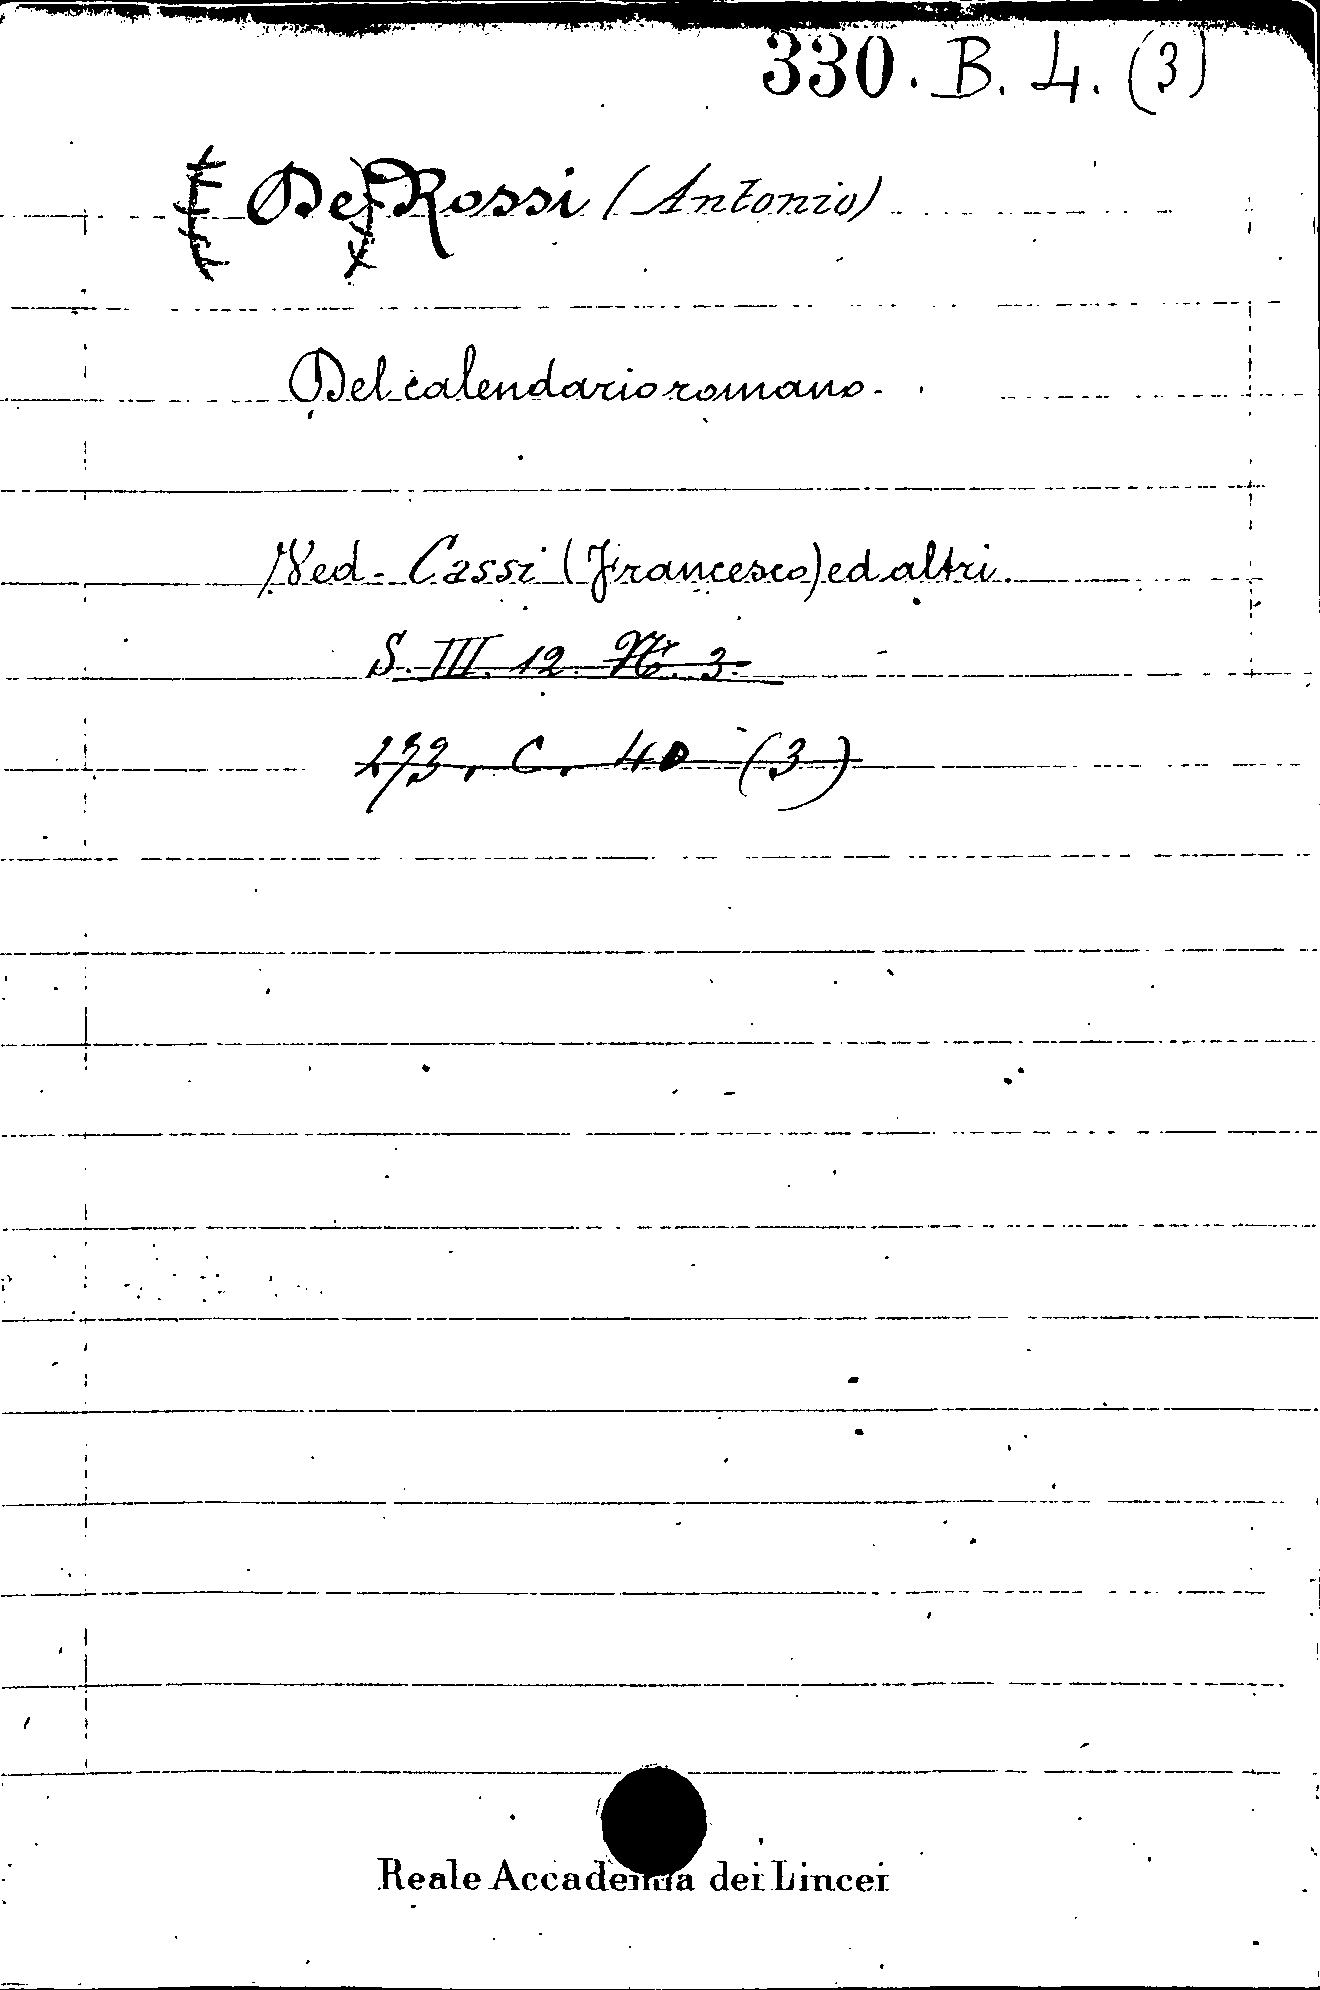 330. B. 4. (3)
De Rossi (Antonio)
Del calendario romano.
Ved. Cassi (Francesco) ed altri.
S. III. 12. N. 3.
273. C. 40 (3)
Reale Accademia dei Lincei